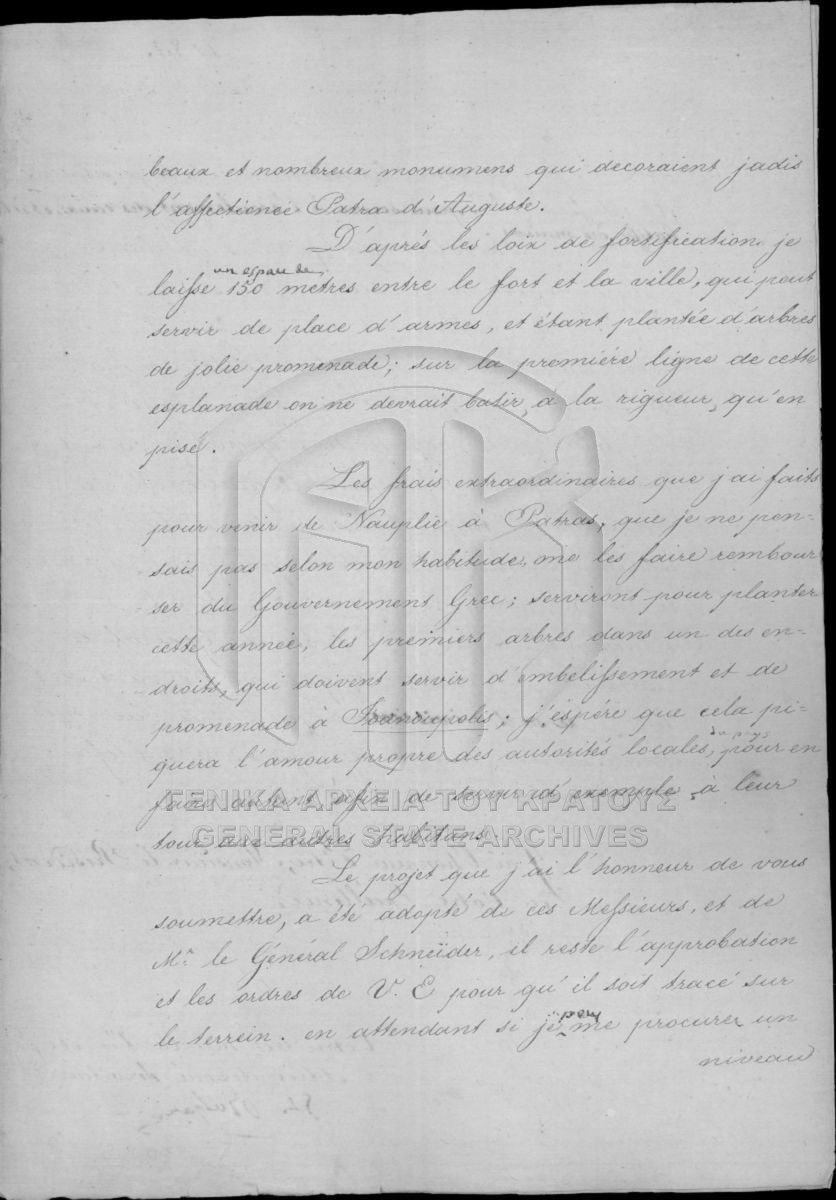 beaux et nombreux monumens qui decoraient jadis
l'affectioneé Patra d'Auguste.
D'aprés les loix de fortification je
laisse un espace de 150 metres entre le fort et la ville, qui peut
servir de place d'armes, et étant plantée d'arbres
de jolie promenade; sur la premiére ligne de cette
esplanade on ne devrait batir, à la rigueur, qu'en
pisé.
Les frais extraordinaires que j'ai faits
pour venir de Nauplie à Patras, que je ne pen-
sais pas selon mon habitude, me les faire rembour
ser du Gouvernement Grec; serviront pour planter
cette anneé, les premiers arbres dans un des en-
droits, qui doivent servir d'embelissement et de
promenade à Joanoupolis; j'éspére que cela pi-
quera l'amour propre des autorités locales, du pays pour en
faire autant afin de servir d'exemple, à leur
tour, aux autres habitans.
Le projet que j'ai l'honneur de vous
soumettre, a été adopté de ces Messieurs, et de
Mr. le Général Schneider, il reste l'approbation
et les ordres de V. E pour qu'il soit tracé sur
le terrein. en attendant si je peux me procurer un
niveau
ΓΕΝΙΚΑ ΑΡΧΕΙΑ ΤΟΥ ΚΡΑΤΟΥΣ
GENERAL STATE ARCHIVES